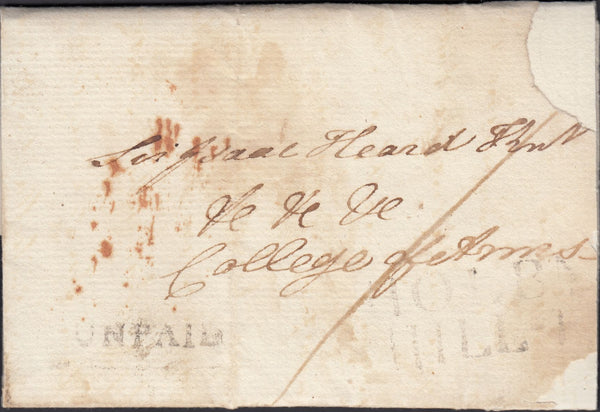 Sir Isaac Heard Knt
&c &c &c
College of Arms
UNPAID